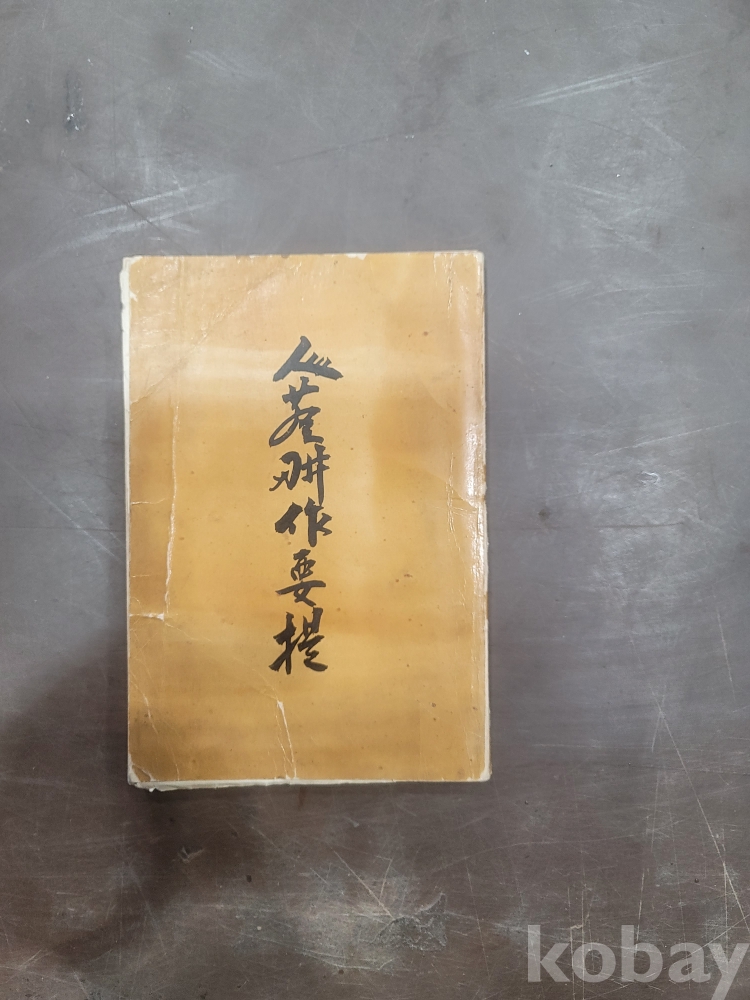 人蔘耕作要提
kobay